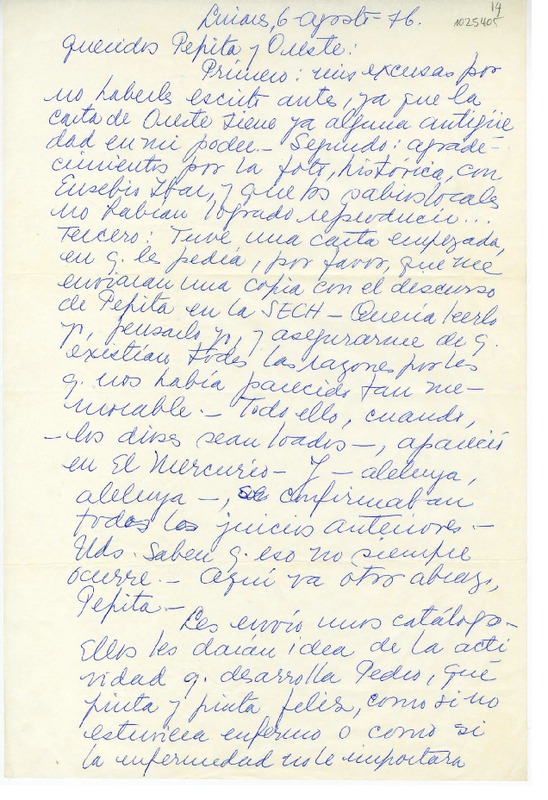 14
1025405
Linares, 6-agosto-76.
Queridos Pepita y Oreste:
Primero: mis excusas por
no haberles escrito antes, ya que la
carta de Oreste tiene ya alguna antigüe
dad en mi poder.- Segundo: agrade-
cimientos por la foto, histórica, con
Eusebio Ibar, y que los sabios locales
no habían logrado reproducir...
Tercero: Tuve una carta empezada,
en q. les pedía, por favor, que me
enviaran una copia con el discurso
de Pepita en la SECH - Quería leerlo
yo, pensarlo yo, y asegurarme de q.
existían todas las razones por las
q. nos había parecido tan me-
morable.- Todo ello, cuando,
- los dioses sean loados -, apareció
en El Mercurio - Y - aleluya,
aleluya -, se confirmaban
todos los juicios anteriores.-
Uds. saben q. eso no siempre
ocurre.- Aquí va otro abrazo,
Pepita.-
Les envío unos catálogos-
Ellos les darán idea de la acti
vidad q. desarrolla Pedro, que
pinta y pinta feliz, como si no
estuviera enfermo o como si
la enfermedad no le importara